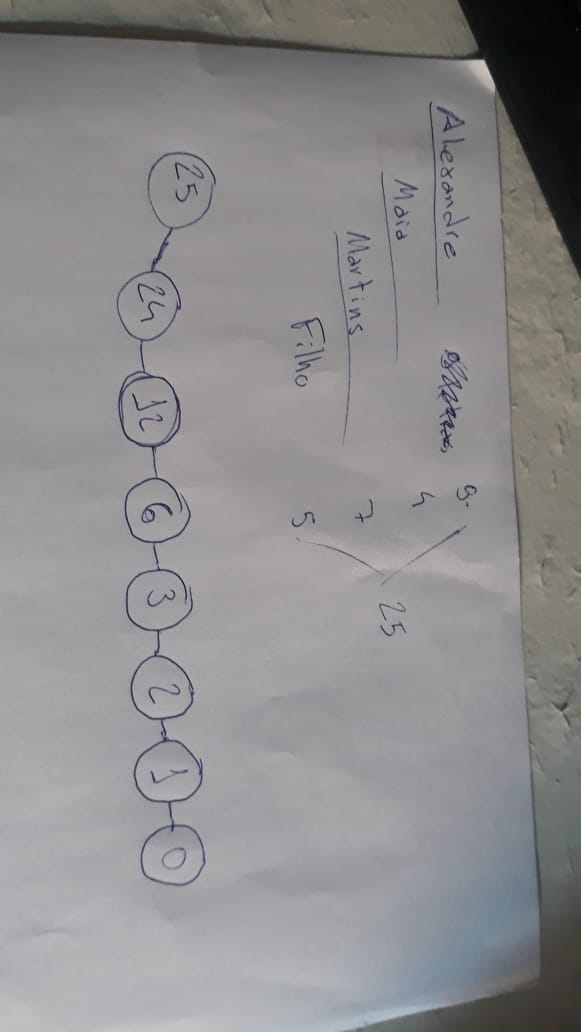 Alexandre 9
Maia 4
25
Martins 7
Filho 5
25 24 12 6 3 2 1 0